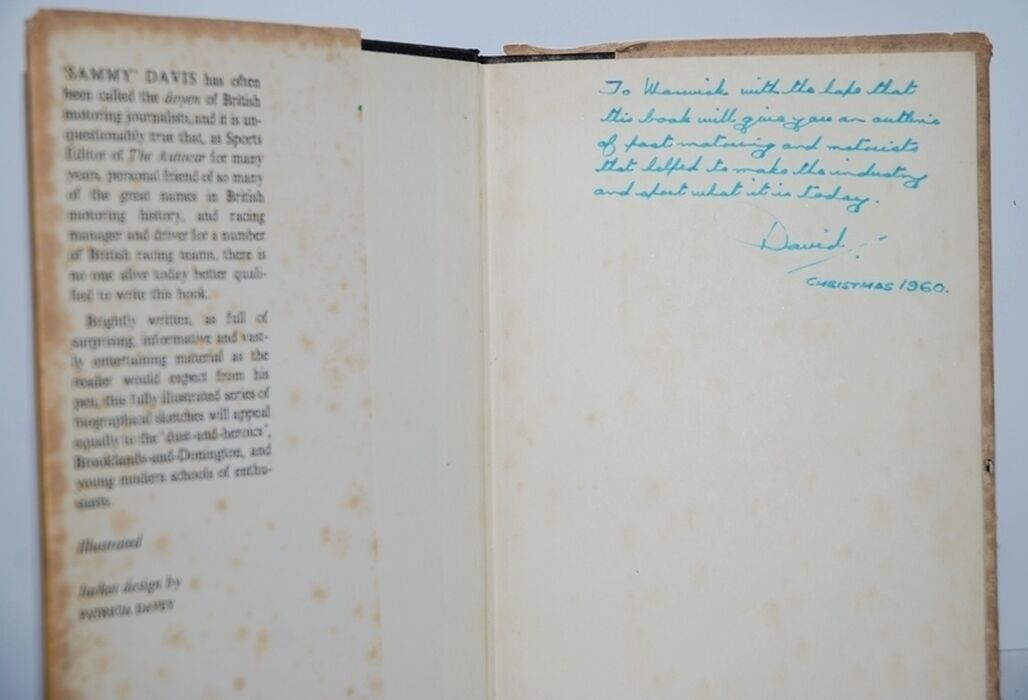 "SAMMY" DAVIS has often
been called the doyen of British
motoring journalists, and it is un-
questionably true that, as Sports
Editor of The Autocar for many
years, personal friend of so many
of the great names in British
motoring history, and racing
manager and driver for a number
of British racing teams, there is
no one alive today better quali-
fied to write this book.
Brightly written, as full of
surprising, informative and vast-
ly entertaining material as the
reader would expect from his
pen, this fully illustrated series of
biographical sketches will appeal
equally to the 'dust-and-heroics',
Brooklands-and-Donington, and
young modern schools of enthu-
siasts.
Illustrated
Jacket design by
PATRICIA DAVEY
To Warwick with the hope that
this book will give you an outline
of past motoring and motorists
that helped to make the industry
and sport what it is today.
David.
CHRISTMAS 1960.